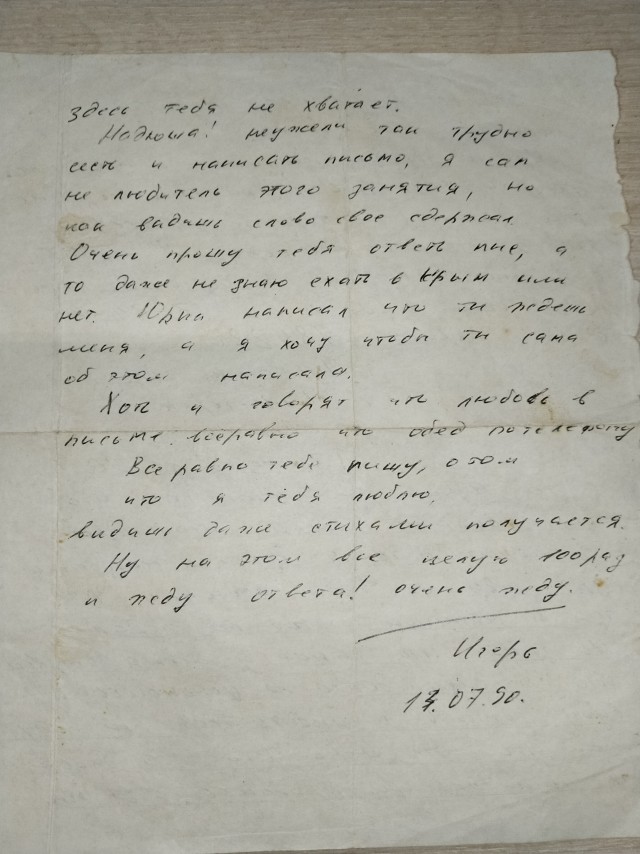 здесь тебя не хватает.
Надюша! неужели так трудно
сесть и написать письмо, я сам
не любитель этого занятия, но
как видишь слово свое сдержал.
Очень прошу тебя ответь мне, а
то даже не знаю ехать в Крым или
нет. Юрка написал что ты ждешь
меня, а я хочу чтобы ты сама
об этом написала.
Хоть и говорят что любовь в
письме всеравно что обед по телефону
Все равно тебе пишу, о том
что я тебя люблю.
видишь даже стихами получается.
Ну на этом все целую 100 раз
и жду ответа! очень жду.
Игорь
07.90.